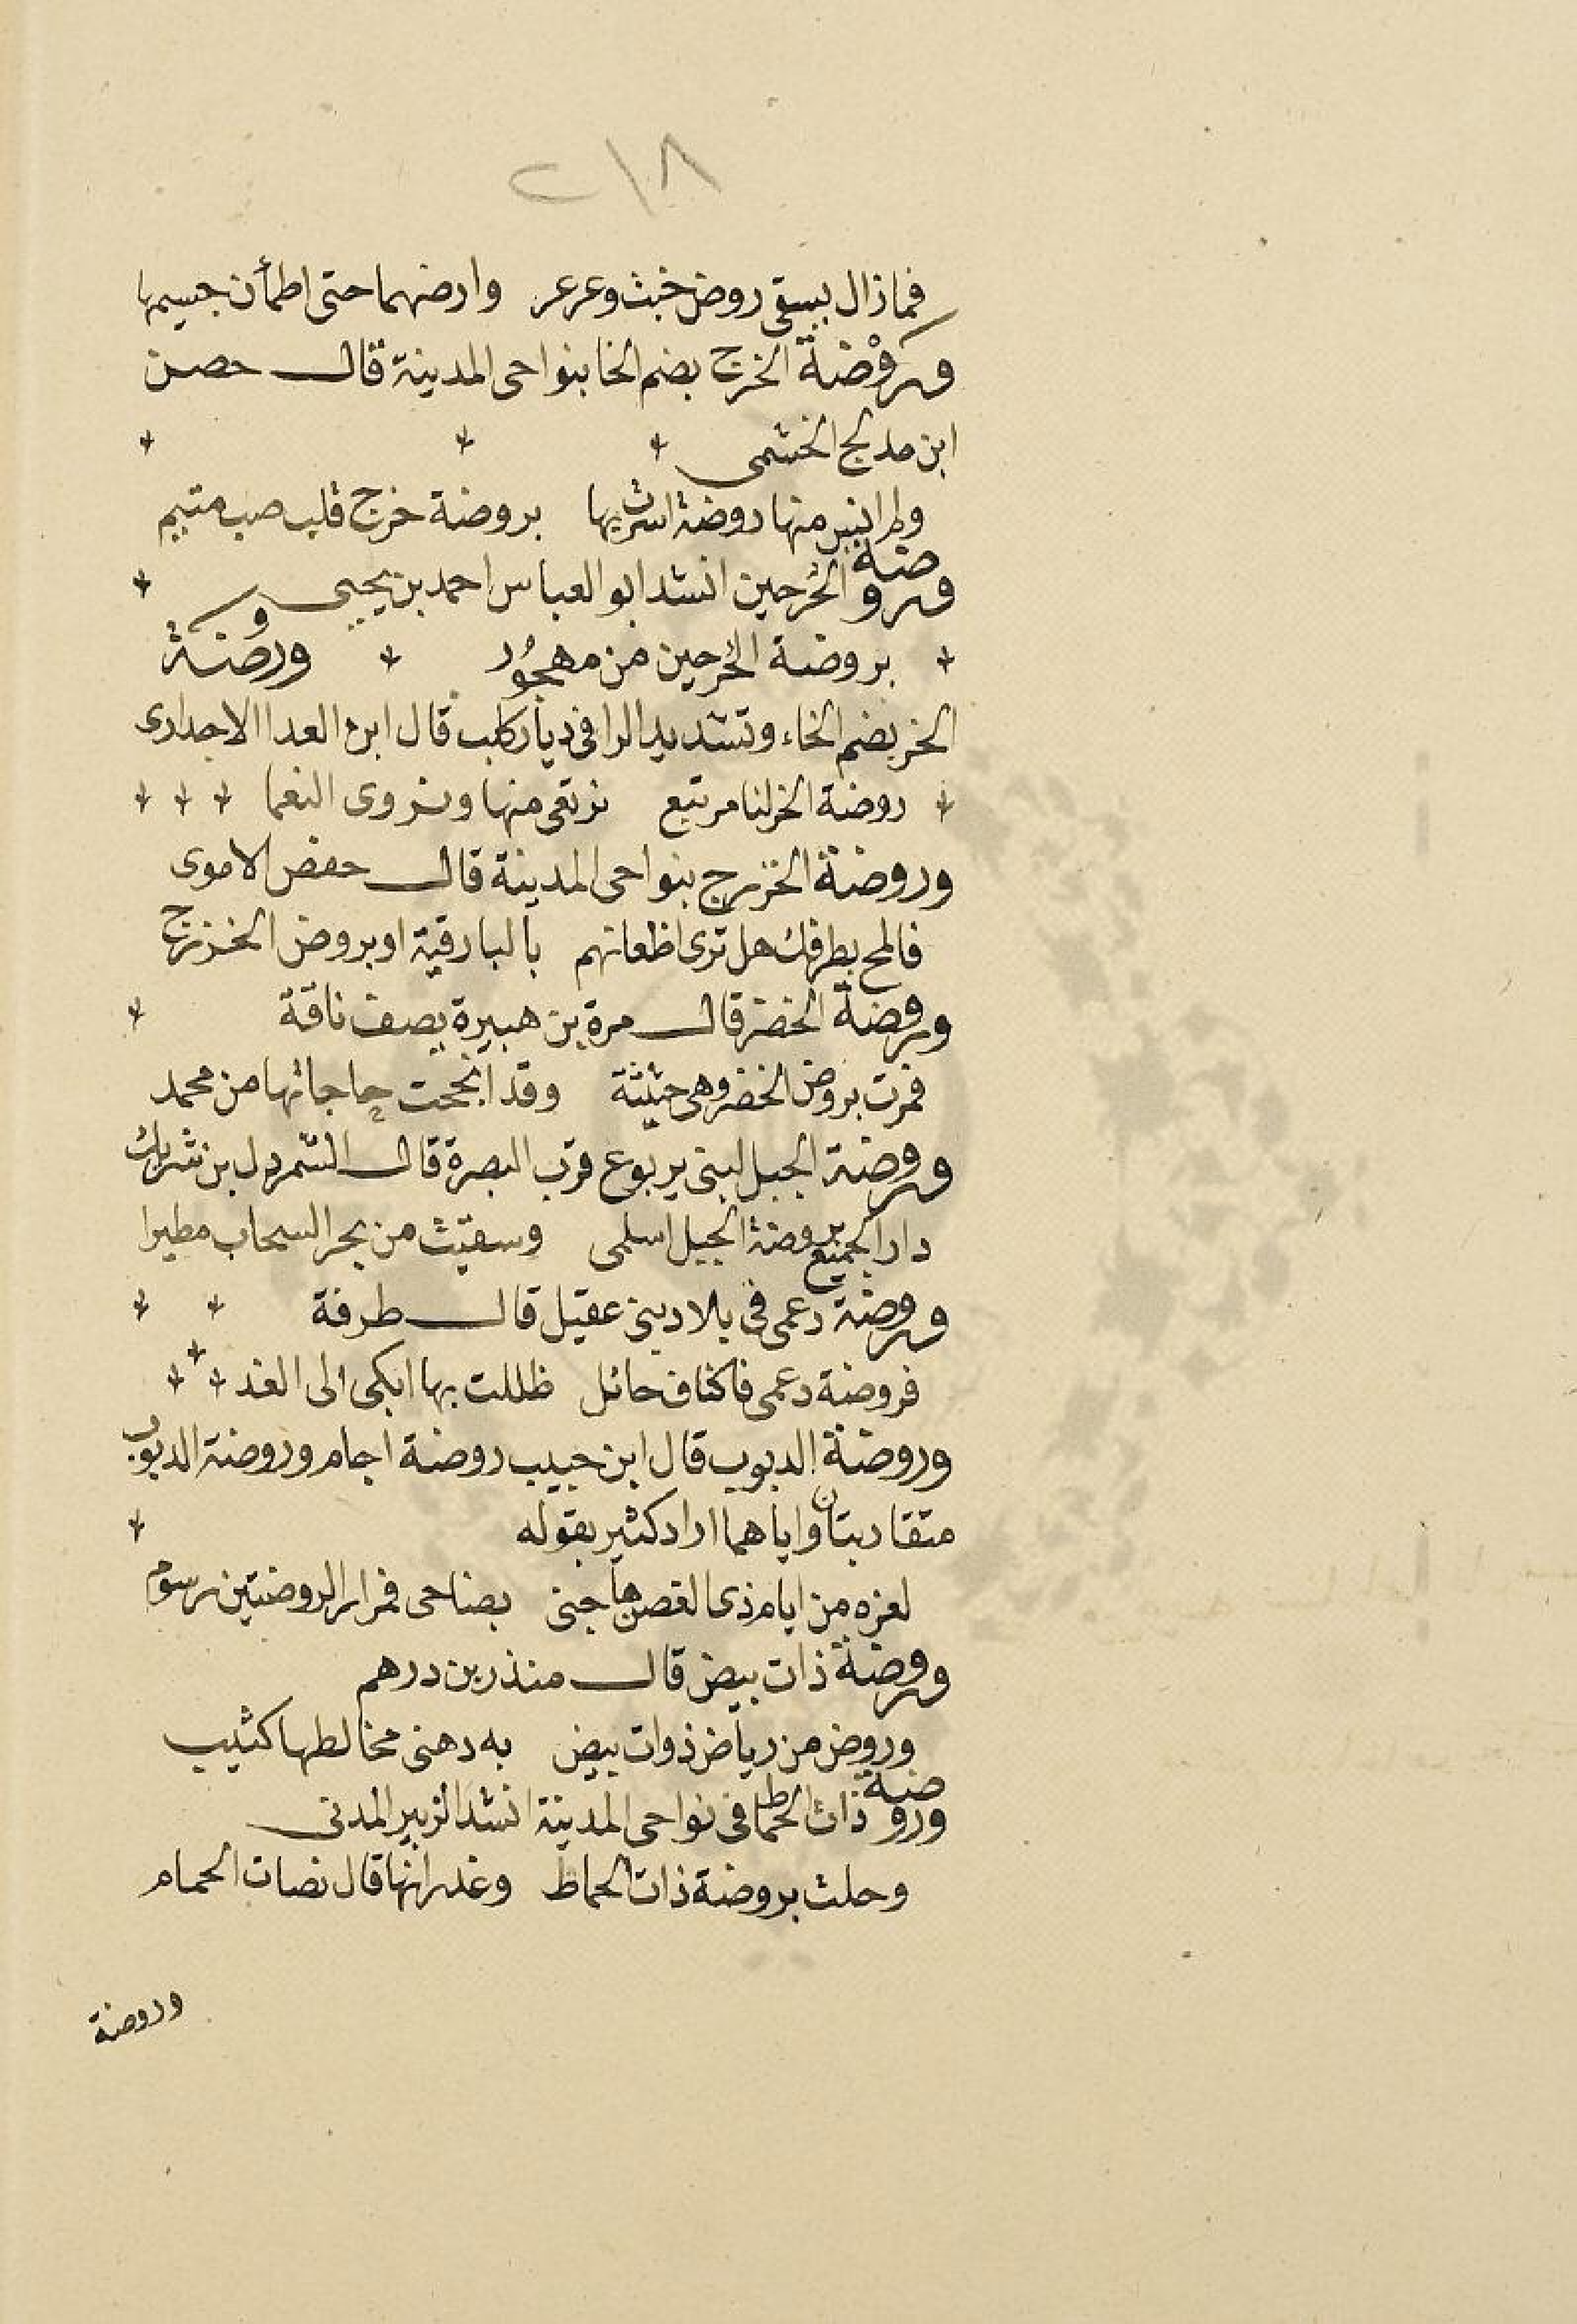 ٢١٨
فمازال يسقى روض خبث وعرعر وارضهما حتى اطمأن جسيمها
وروْضة الخرج بضم الخا بنواحى المدينة قال حصن
ابن مدلج الخثعمى
ولم انس منها روضة اسرت بها بروضة خرج قلب صب متيم
وروضة الخُرجين انشد ابو العباس احمد بن يحيى
بروضة الخُرجين من مهجُور وروضة
الخر بضم الخاء وتشديد الرا فى ديار كلب قال ابن العدا الاجدارى
روضة الخر لنا مرتبع نرتعى منها ونروى النعما
وروضة الخزرج بنواحى المدينة قال حفص الاموى
فالمح بطرفك هل ترى اظعانهم بالبارقية او بروض الخزرج
وروضة الخضر قال مرة بن هبيرة يصف ناقة
فمرت بروض الخضر وهى حثيثة وقد انجحت حاجاتها من محمد
وروضة الجبل لبنى يربوع قرب البصرة قال الشمردل بن شريك
دار الجميع بروضة الجبل اسلمى وسقيت من بحر السحاب مطيرا
وروضة دعمى فى بلاد بنى عقيل قال طرفة
فروضة دعمى فاكناف حائل ظللت بها ابكى الى الغد
وروضة الدبوب قال ابن حبيب روضة اجام وروضة الدبوب
متقاربتان واياهما اراد كثير بقوله
لعزه من ايام ذى الغصن هاجنى بضاحى قرار الروضتين رسوم
وروضة ذات بيض قال منذر بن درهم
وروض من رياض ذوات بيض به دهنى مخالطها كثيب
وروضة ذات الحماط فى نواحى المدينة انشد الزبير المدنى
وحلت بروضة ذات الحماط وغدرانها قال نصات الحمام
وروضة